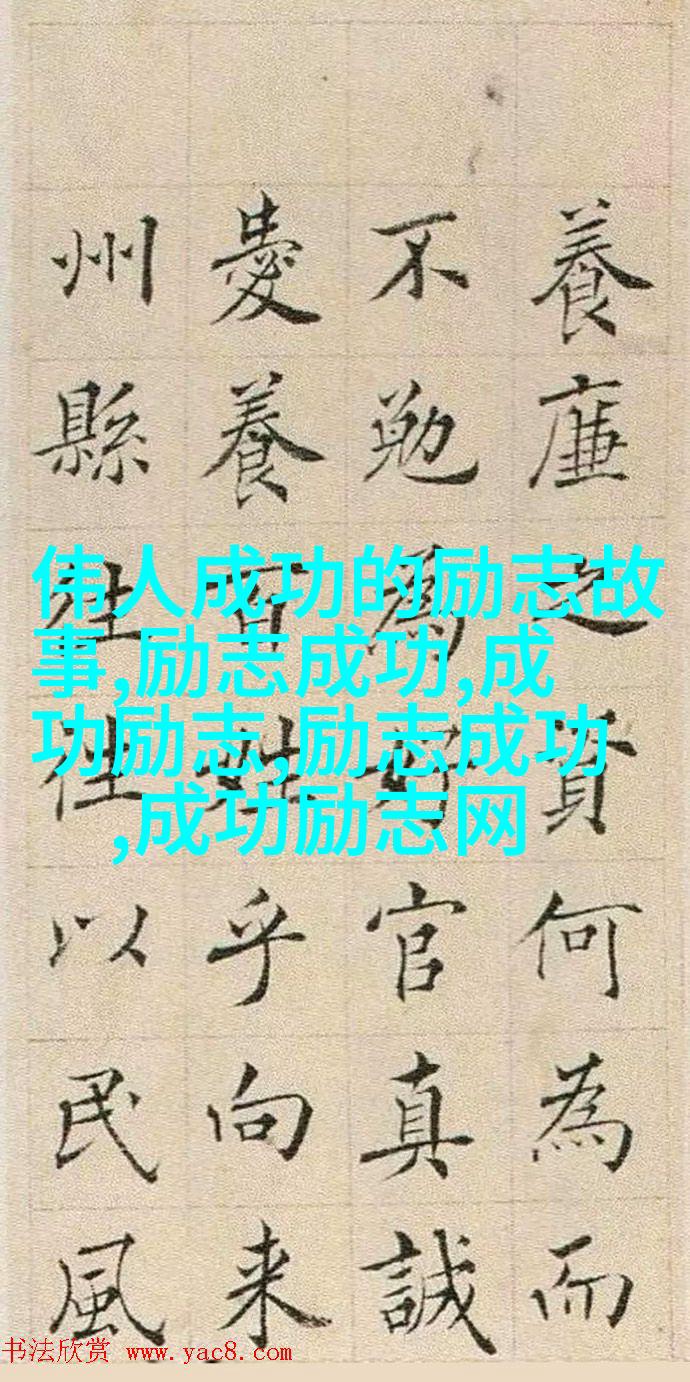 養廉之資何為而
不勉為官真誠
愛養百姓乎向来
州縣往往以民風
伟人成功的励志故
事,励志成功,成
功励志,励志成功
,成功励志网
书法欣赏 www.yac8.com